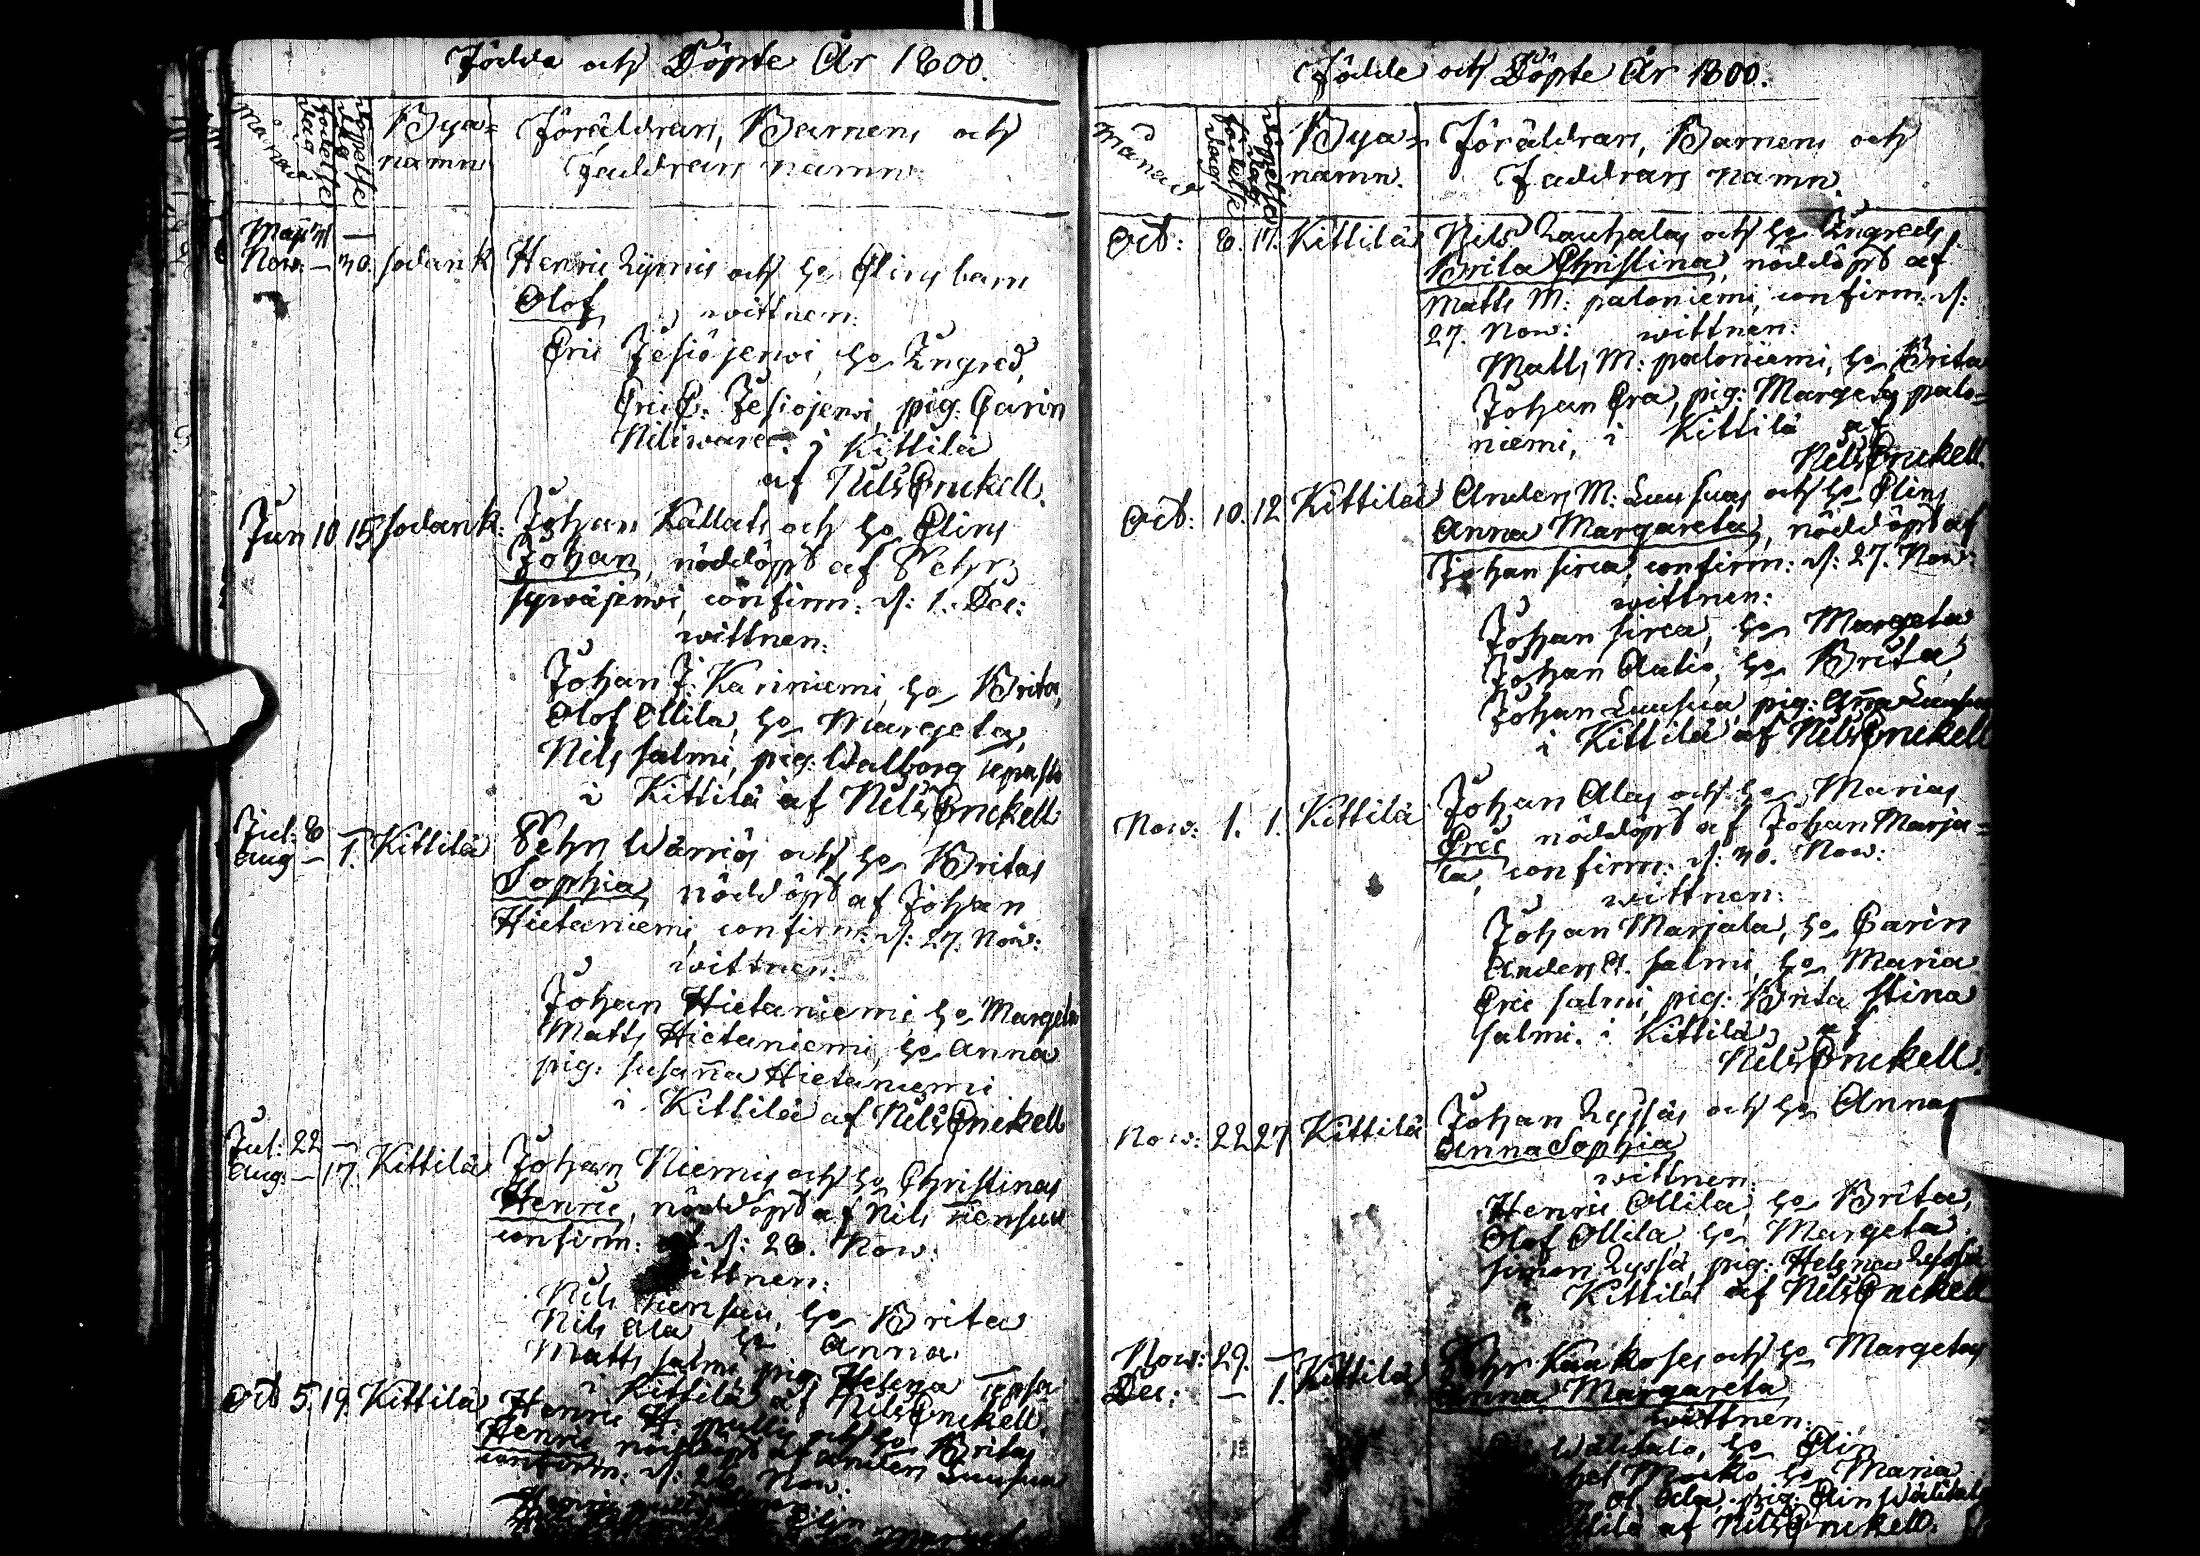 Födda och Döpte År 1800.
Månad
Födelse dag
Döpelse dag
Bya=
namn
Föräldrars, Barnens och
Faddrars namn.
Nov: — 30. Sodank
Henric Lymis och ho Elins barn
Olof, wittnen:
Eric Jesiöjerwi, ho Ingred,
Eric E: Jesiöjerwi, pig: Carin
Niliware i Kittilä
af Nils Enckell.
Jun 10 15 Sodank:
Johan Kallats och ho Elins
Johan, nöddöpt af Pehr
Sywäjerwi, confirm: d: 1. Dec:
wittnen:
Johan J: Kariniemi, ho Brita,
Olof Ollila, ho Margeta,
Nils Salmi, pig: Walborg
i Kittilä af Nils Enckell
Jul: 8 —
Aug — 1. Kittilä
Pehr Wärriös och ho Britas
Sophia, nöddöpt af Johan
Hietaniemi, confirm: d: 27. Nov:
wittnen:
Johan Hietaniemi, ho Margeta
Matts Hietaniemi, ho Anna
pig: Susanna Hietaniemi
i Kittilä af Nils Enckell
Jul: 22 —
Aug: — 17. Kittilä
Johan Niemis och ho Christinas
Henric, nöddöpt af Nils
confirm: d: 28. Nov:
wittnen:
Nils ho Brita
Nils Ala ho Anna
Matts Salmi pig: Helena
i Kittilä af Nils Enckell.
Oct 5. 19. Kittilä
Henric H: och ho Britas
Henric nöddöpt af Anders Luusua
confirm: d: 28 Nov:
Födde och Döpte År 1800.
Månad
Födelse dag
Döpelse dag
Bya=
namn.
Föräldrars, Barnens och
Faddrars namn.
Oct: 8. 17. Kittilä
Nils Lauhalas och ho Ingreds
Brita Christina, nöddöpt af
Matts M: paloniemi, confirm: d:
27. Nov: wittnen:
Matts M: paloniemi, ho Brita
Johan Era, pig: Margeta palo=
niemi, i Kittilä af
Nils Enckell.
Oct: 10. 12 Kittilä
Anders M: Luusuas och ho Elins
Anna Margareta, nöddöpt af
Johan Sirca, confirm: d: 27. Nov:
wittnen:
Johan Sirca, ho Margeta
Johan Autio, ho Brita,
Johan Luusua, pig: Anna Luusua
i Kittilä af Nils Enckell
Nov: 1. 1. Kittilä
Johan Alas och ho Marias
Eric nöddöpt af Johan Marja=
la, confirm: d: 30. Nov:
wittnen:
Johan Marjala, ho Carin
Anders A. Salmi, ho Maria
Eric Salmi, pig: Brita Stina
Salmi. i Kittilä af
Nils Enckell.
Nov: 22 27 Kittilä
Johan Lyssäs och ho Annas
Anna Sophia
wittnen:
Henric Ollila, ho Brita,
Olof Ollila, ho Margeta.
Simon Lyssä, pig: Helena Lyssä
i Kittilä af Nils Enckell
Nov: 29. —
Dec: — 1. Kittilä
Pehr Kaukoses och ho Margetas
Anna Margareta
wittnen:
Wälitalo, ho Elin
ho Maria
Ala, pig: Elin Wälitalo
af Nils Enckell.